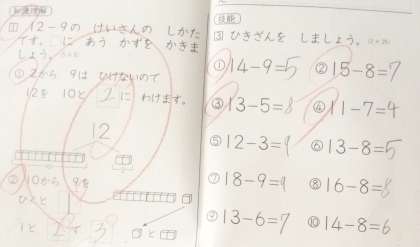 知識・理解
1 12-9の けいさんの しかた
です。□に あう かずを かきま
しょう。
① 2から 9は ひけないので
12を 10と 2に わけます。
12
② 10から 9を
ひくと 1
1と 2で 3
技能
3 ひきざんを しましょう。
① 14-9=5
② 15-8=7
③ 13-5=8
④ 11-7=4
⑤ 12-3=9
⑥ 13-8=5
⑦ 18-9=9
⑧ 16-8=8
⑨ 13-6=7
⑩ 14-8=6